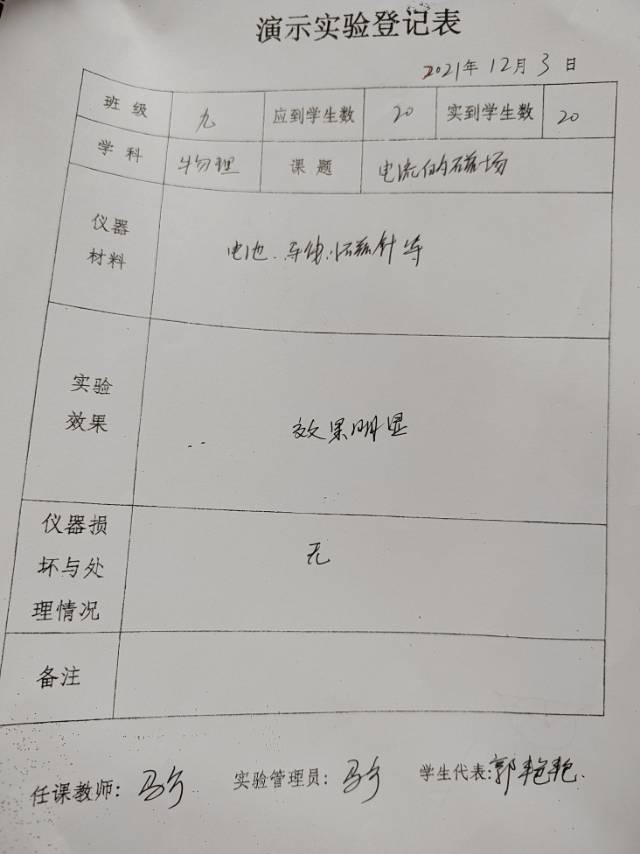 演示实验登记表
2021年 12月 3日
班级 九 应到学生数 20 实到学生数 20
学科 物理 课题 电流的磁场
仪器
材料
电池、导线、小磁针等
实验
效果
效果明显
仪器损
坏与处
理情况
无
备注
任课教师: 实验管理员: 学生代表:郭艳艳